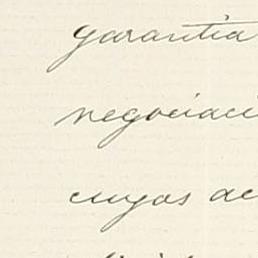 garantia
negociaci
cuyas ac